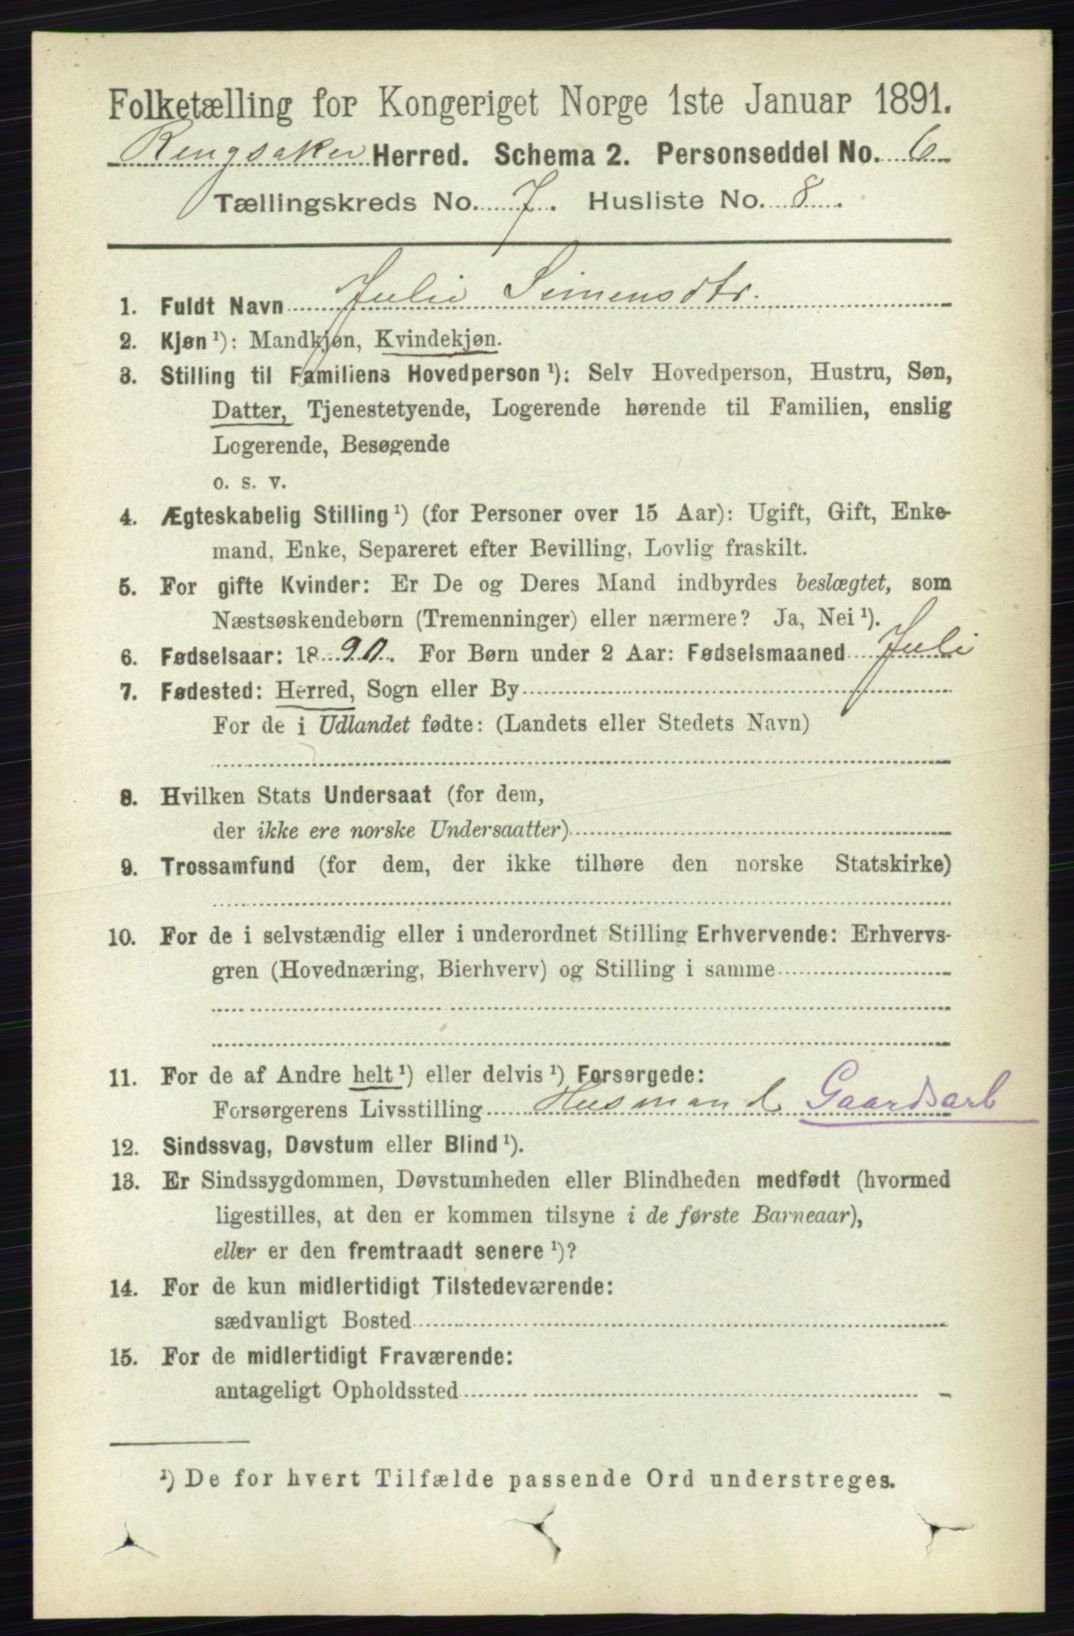 Folketælling for Kongeriget Norge 1ste Januar 1891.
Ringsaker Herred. Schema 2. Personseddel No. 6
Tællingskreds No. 7. Husliste No. 8.
1. Fuldt Navn Julie Simensdtr.
2. Kjøn ¹): Mandkjøn, Kvindekjøn.
3. Stilling til Familiens Hovedperson ¹): Selv Hovedperson, Hustru, Søn,
Datter, Tjenestetyende, Logerende hørende til Familien, enslig
Logerende, Besøgende
o. s. v.
4. Ægteskabelig Stilling ¹) (for Personer over 15 Aar): Ugift, Gift, Enke-
mand, Enke, Separeret efter Bevilling, Lovlig fraskilt.
5. For gifte Kvinder: Er De og Deres Mand indbyrdes beslægtet, som
Næstsøskendebørn (Tremenninger) eller nærmere? Ja, Nei ¹).
6. Fødselsaar: 1890. For Børn under 2 Aar: Fødselsmaaned Juli
7. Fødested: Herred, Sogn eller By
For de i Udlandet fødte: (Landets eller Stedets Navn)
8. Hvilken Stats Undersaat (for dem,
der ikke ere norske Undersaatter)
9. Trossamfund (for dem, der ikke tilhøre den norske Statskirke)
10. For de i selvstændig eller i underordnet Stilling Erhvervende: Erhvervs-
gren (Hovednæring, Bierhverv) og Stilling i samme
11. For de af Andre helt ¹) eller delvis ¹) Forsørgede:
Forsørgerens Livsstilling Husmand Gaardsarb
12. Sindssvag, Døvstum eller Blind ¹).
13. Er Sindssygdommen, Døvstumheden eller Blindheden medfødt (hvormed
ligestilles, at den er kommen tilsyne i de første Barneaar),
eller er den fremtraadt senere ¹)?
14. For de kun midlertidigt Tilstedeværende:
sædvanligt Bosted
15. For de midlertidigt Fraværende:
antageligt Opholdssted
¹) De for hvert Tilfælde passende Ord understreges.